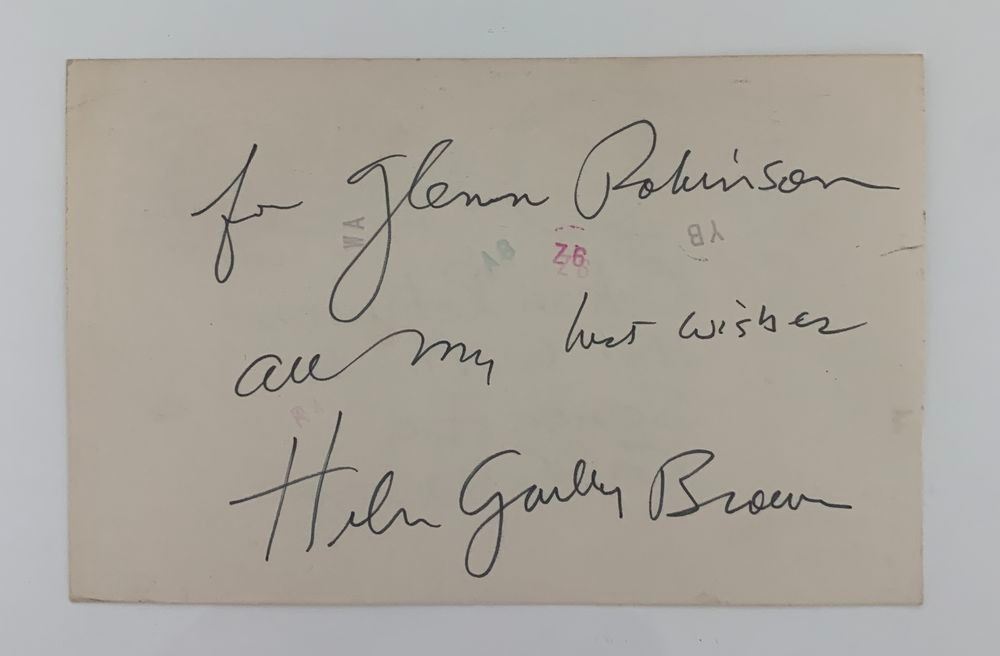 for Glenn Robinson
WA AB Z6 YB
all my best wishes
Helen Gurley Brown